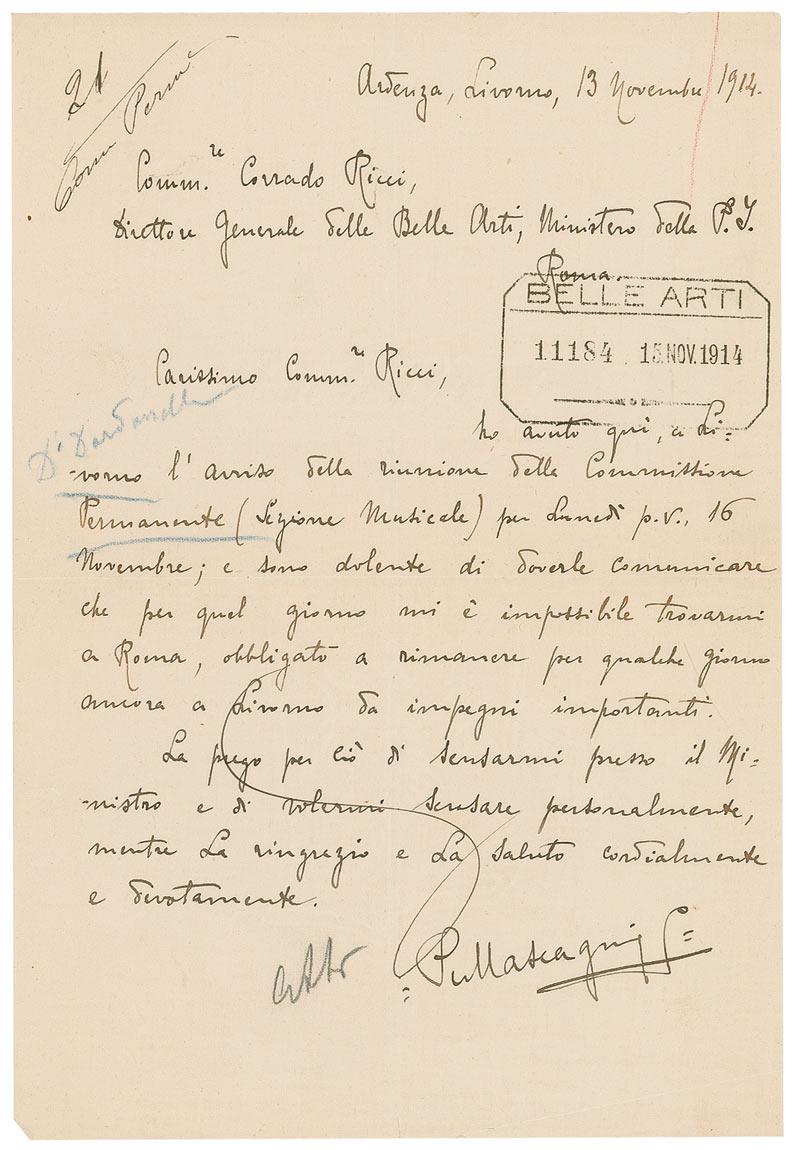 21
Com Perm
Ardenza, Livorno, 13 Novembre 1914.
Comm.re Corrado Ricci,
Direttore Generale delle Belle Arti, Ministero della P. I.
Roma.
BELLE ARTI
11184 15.NOV.1914
Carissimo Comm.re Ricci,
D' Dardanelle
ho avuto qui, a Li=
-vorno l'avviso della riunione della Commissione
Permanente (Sezione Musicale) per Lunedì p.v., 16
Novembre; e sono dolente di doverle comunicare
che per quel giorno mi è impossibile trovarmi
a Roma, obbligato a rimanere per qualche giorno
ancora a Livorno da impegni importanti.
La prego per ciò di scusarmi presso il Mi=
-nistro e di volermi scusare personalmente,
mentre La ringrazio e La saluto cordialmente
e devotamente.
= PMascagni =
Atti